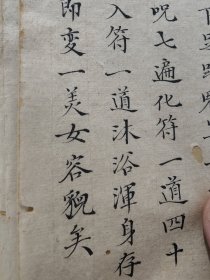 咒七遍化符一道四十
入符一道沐浴渾身存
即变一美女容貌矣